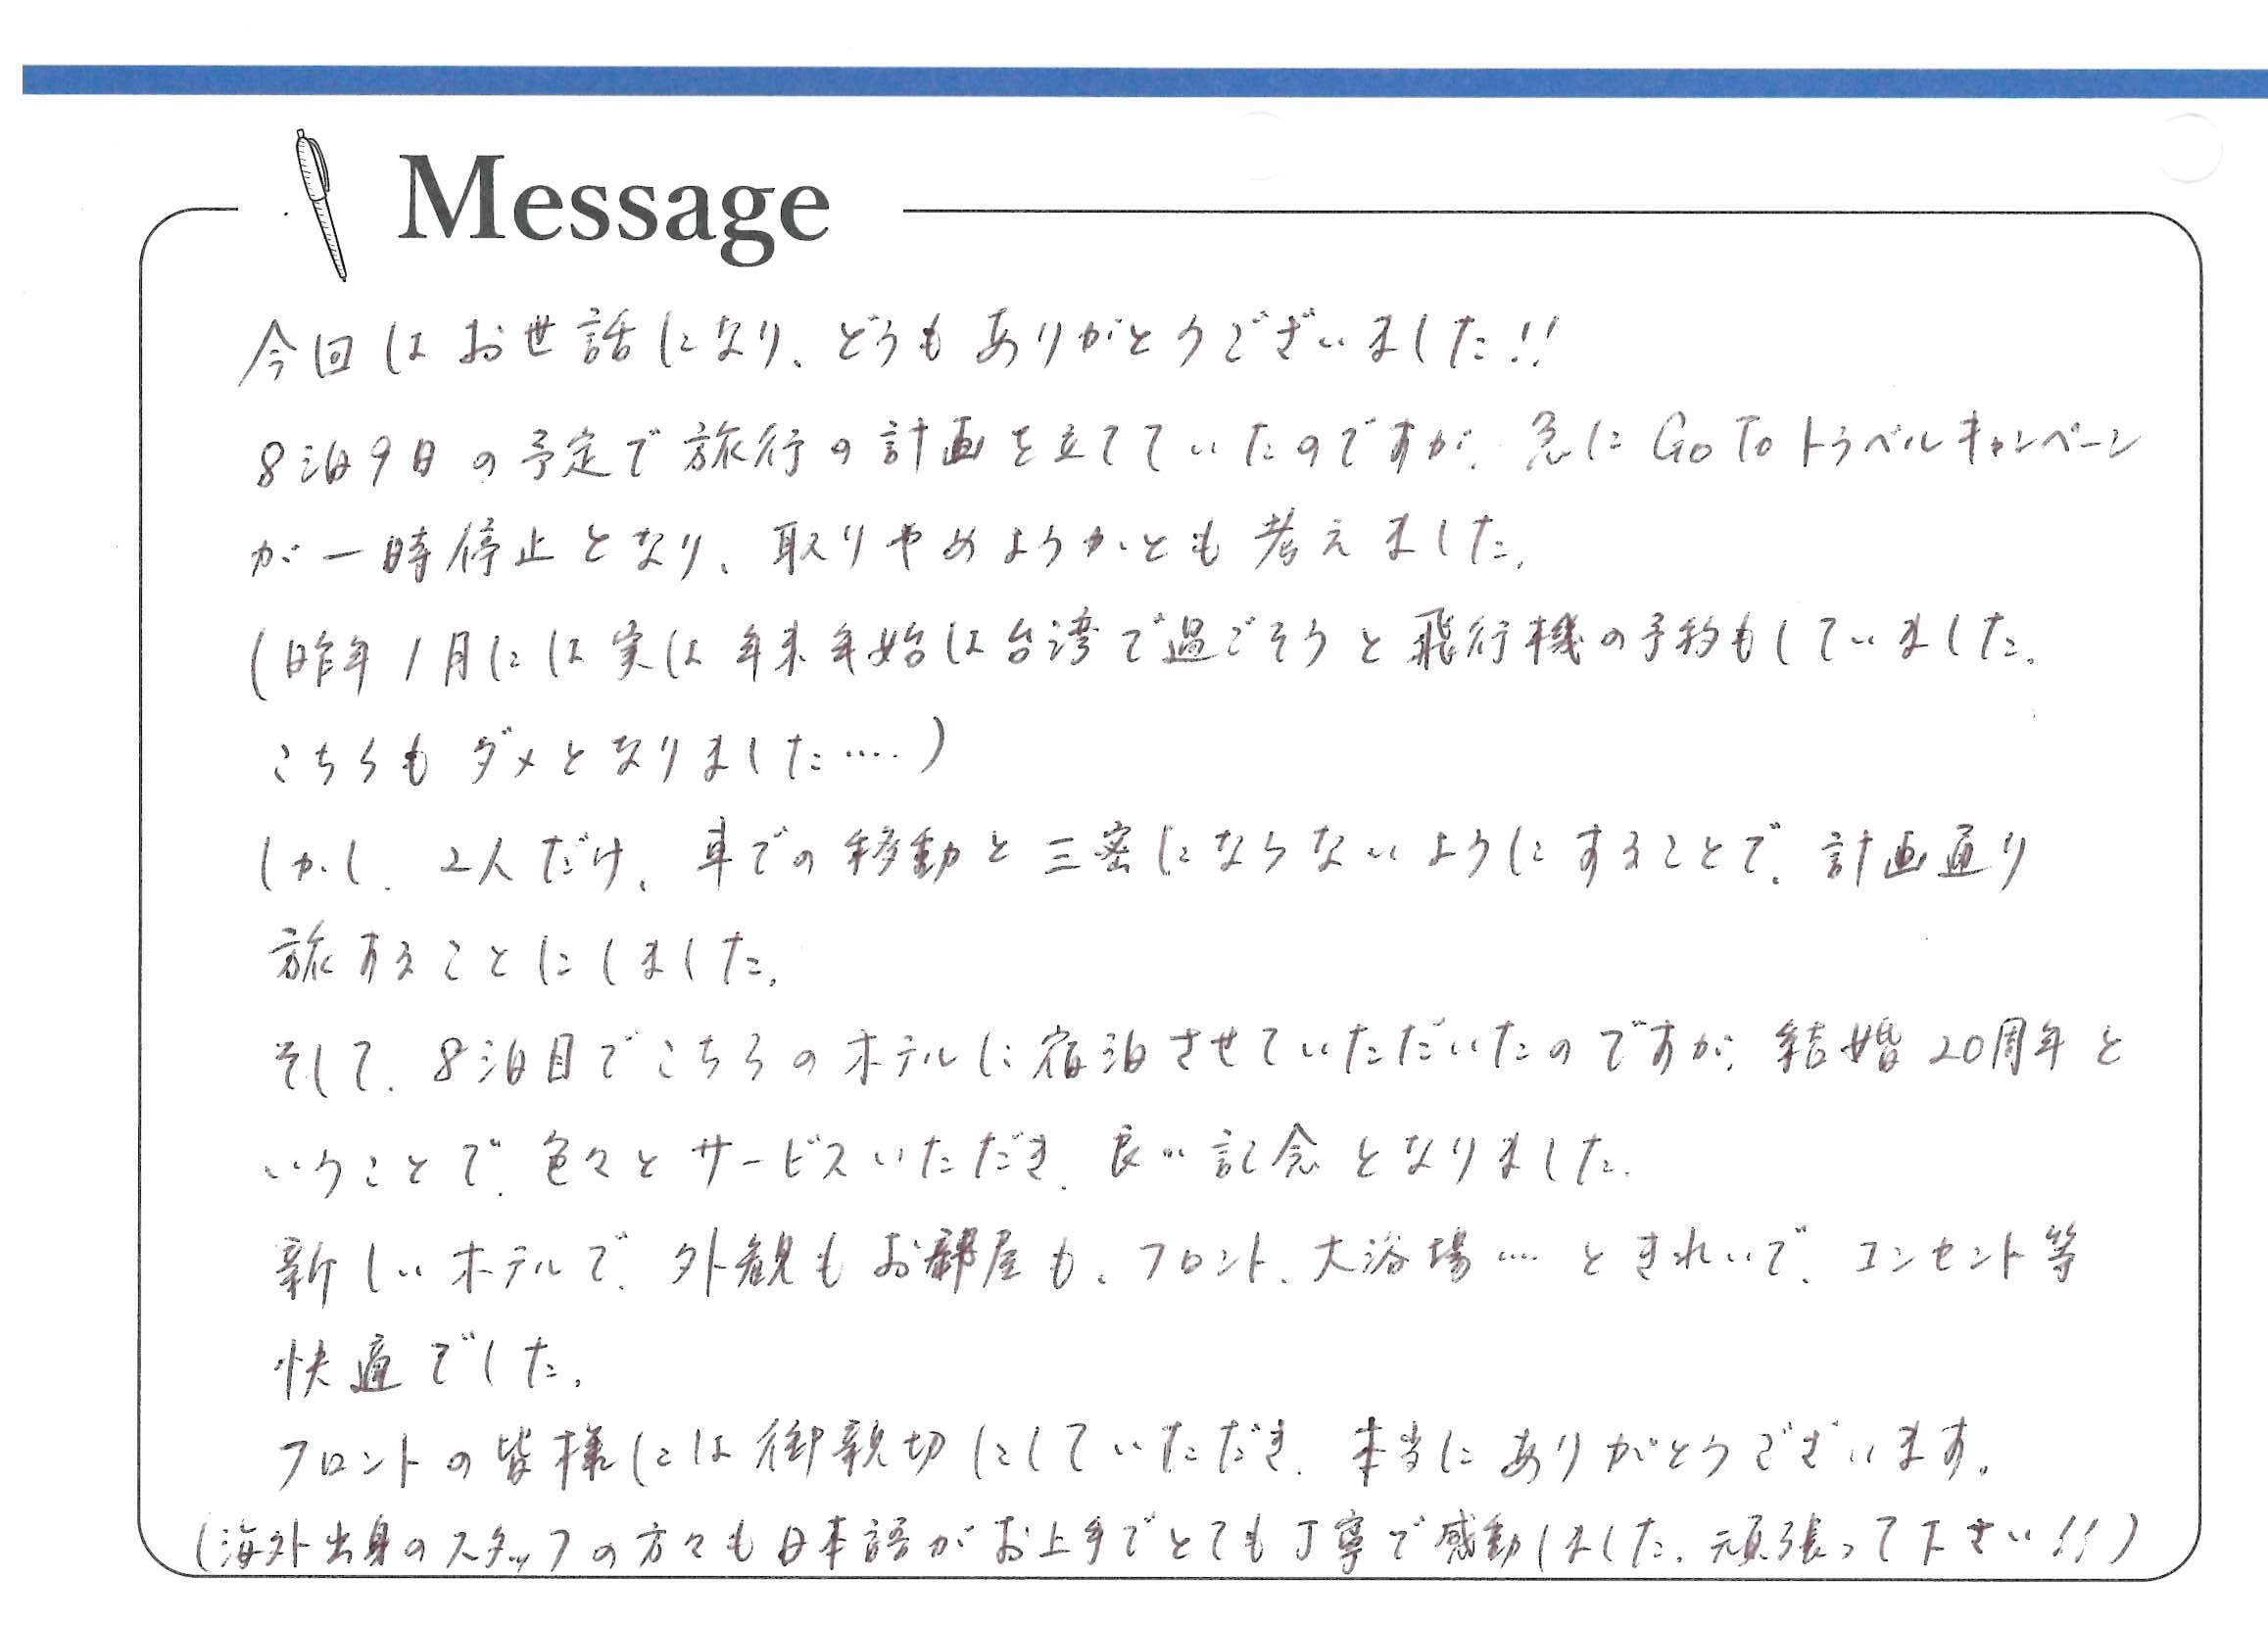 Message
今回はお世話になり、どうもありがとうございました!!
8泊9日の予定で旅行の計画を立てていたのですが、急にGoToトラベルキャンペーン
が一時停止となり、取りやめようかとも考えました。
(昨年1月には実は年末年始は台湾で過ごそうと飛行機の予約もしていました。
こちらもダメとなりました‥‥)
しかし、2人だけ、車での移動と三密にならないようにすることで、計画通り
旅することにしました。
そして、8泊目でこちらのホテルに宿泊させていただいたのですが、結婚20周年と
いうことで、色々とサービスいただき、良い記念となりました。
新しいホテルで、外観もお部屋も、フロント、大浴場‥‥ときれいで、コンセント等
快適でした。
フロントの皆様には御親切にしていただき、本当にありがとうございます。
(海外出身のスタッフの方々も日本語がお上手でとても丁寧で感動しました、頑張って下さい!!)